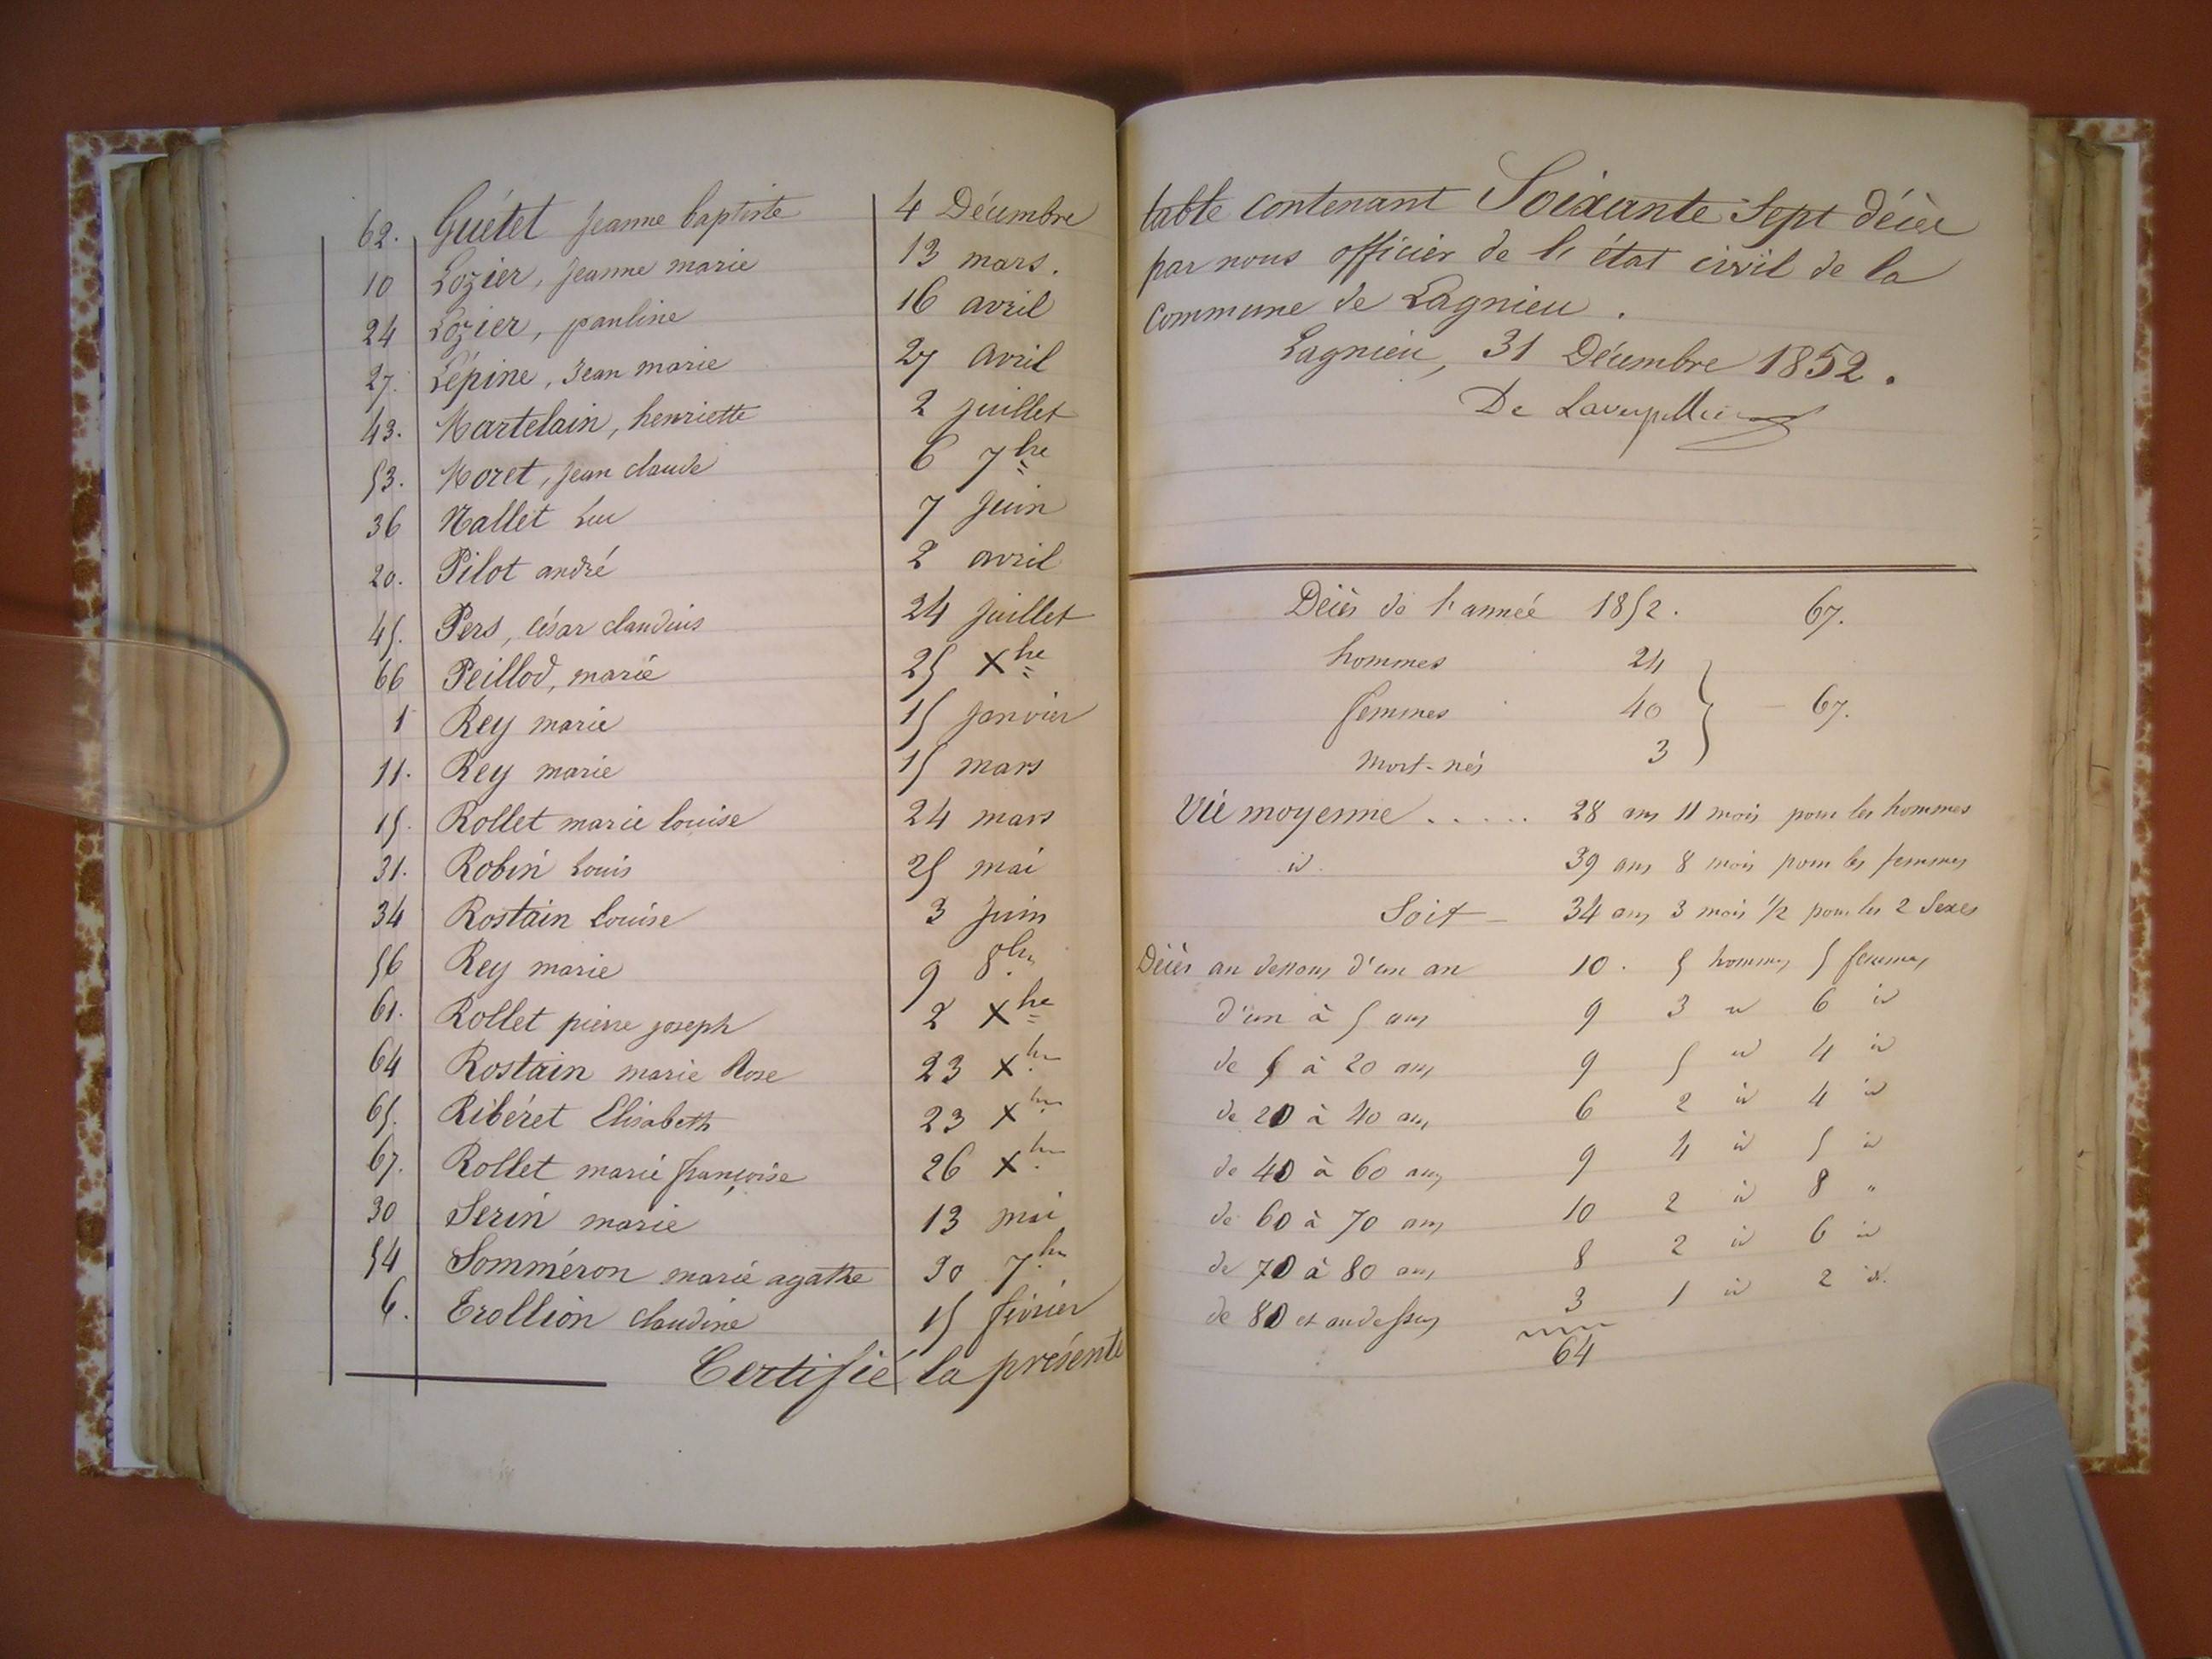 62. Guétet Jeanne baptiste 4 Décembre
10 Lozier, Jeanne marie 13 mars.
24 Lozier, pauline 16 avril
27. Lépine, Jean marie 27 avril
43. Martelain, henriette 2 juillet
53. Moret, jean claude 6 7bre
36 Nallet Luc 7 Juin
20. Pilot andré 2 avril
45. Pers, César claudius 24 juillet
66 Peillod, marie 25 Xbre
1 Rey marie 15 janvier
11. Rey marie 15 mars
15. Rollet marie louise 24 mars
31. Robin Louis 25 mai
34 Rostain Louise 3 Juin
56 Rey marie 9 8bre
61. Rollet pierre joseph 2 Xbre
64 Rostain marie Rose 23 Xbre
65. Ribéret Elisabeth 23 Xbre
67. Rollet marie françoise 26 Xbre
30 Serin marie 13 mai
54 Somméron marie agathe 30 7bre
6. Trollion claudine 15 février
Certifié la présente
table contenant Soixante Sept décès
par nous officier de l'état civil de la
commune de Lagnieu.
Lagnieu, 31 Décembre 1852.
De
Décès de l'année 1852. 67.
hommes 24
femmes 40 67.
mort-nés 3
Vie moyenne ..... 28 ans 11 mois pour les hommes
id. 39 ans 8 mois pour les femmes
Soit 34 ans 3 mois 1/2 pour les 2 Sexes
Décès au dessous d'un an 10. 5 hommes 5 femmes
d'un à 5 ans 9 3 id 6 id
de 5 à 20 ans 9 5 id 4 id
de 20 à 40 ans 6 2 id 4 id
de 40 à 60 ans 9 4 id 5 id
de 60 à 70 ans 10 2 id 8 "
de 70 à 80 ans 8 2 id 6 id
de 80 et au dessus 3 1 id 2 id.
64